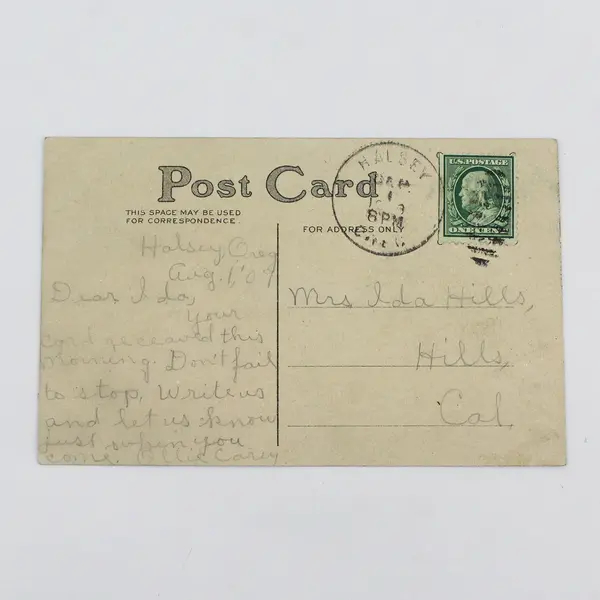 Post Card
THIS SPACE MAY BE USED
FOR CORRESPONDENCE.
FOR ADDRESS ONLY
HALSEY
1
8PM
U.S. POSTAGE
ONE CENT
Halsey, Oreg
Aug. 1, '09
Dear Ida,
your
card received this
morning. Don't fail
to stop. Write us
and let us know
just when you
come. Ollie Carey
Mrs Ida Hills,
Hills,
Cal.